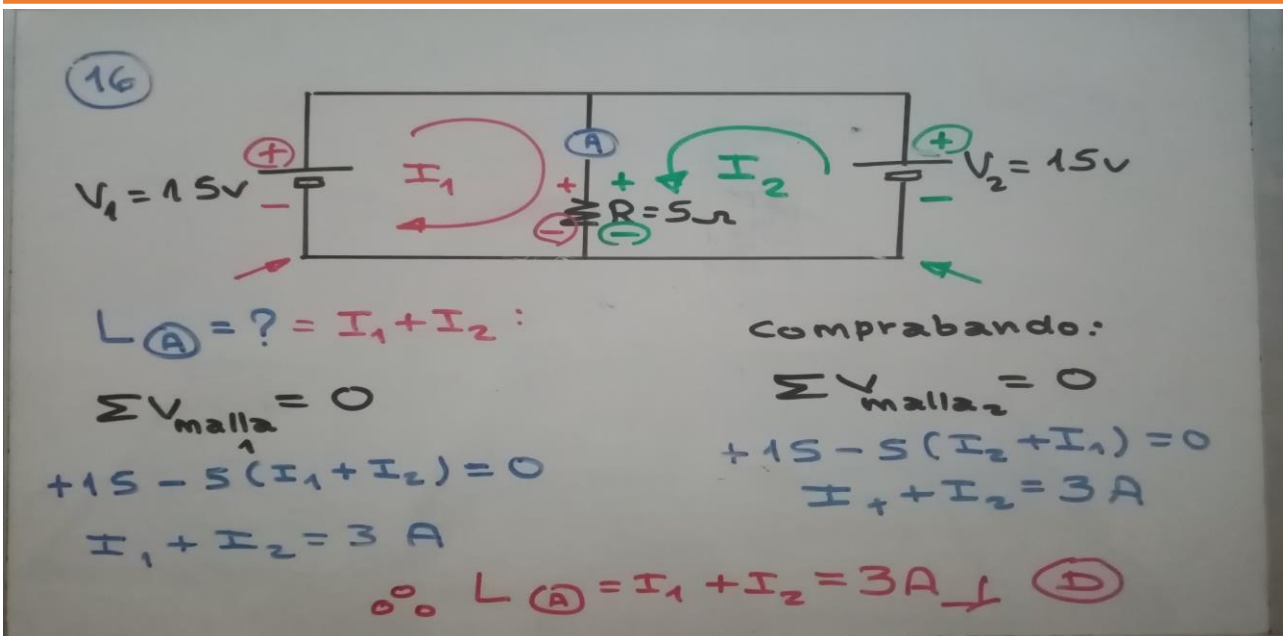 16
+ I₁ A + I₂ +
V₁ = 15v - + + R = 5Ω V₂ = 15v -
- -
L A = ? = I₁ + I₂ :
ΣV malla 1 = 0
+15 - 5 (I₁ + I₂) = 0
I₁ + I₂ = 3 A
comprabando:
ΣV malla₂ = 0
+15 - 5 (I₂ + I₁) = 0
I₁ + I₂ = 3 A
∴ L A = I₁ + I₂ = 3A D